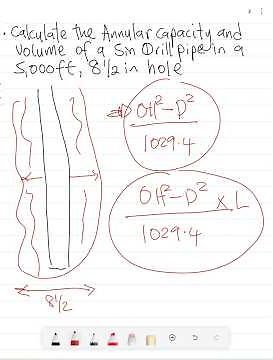 . Calculate the Annular Capacity and
Volume of a 5in Drill pipe in a
5,000ft, 8 1/2 in hole
OH²-D²
1029.4
OH²-D² x L
1029.4
8 1/2